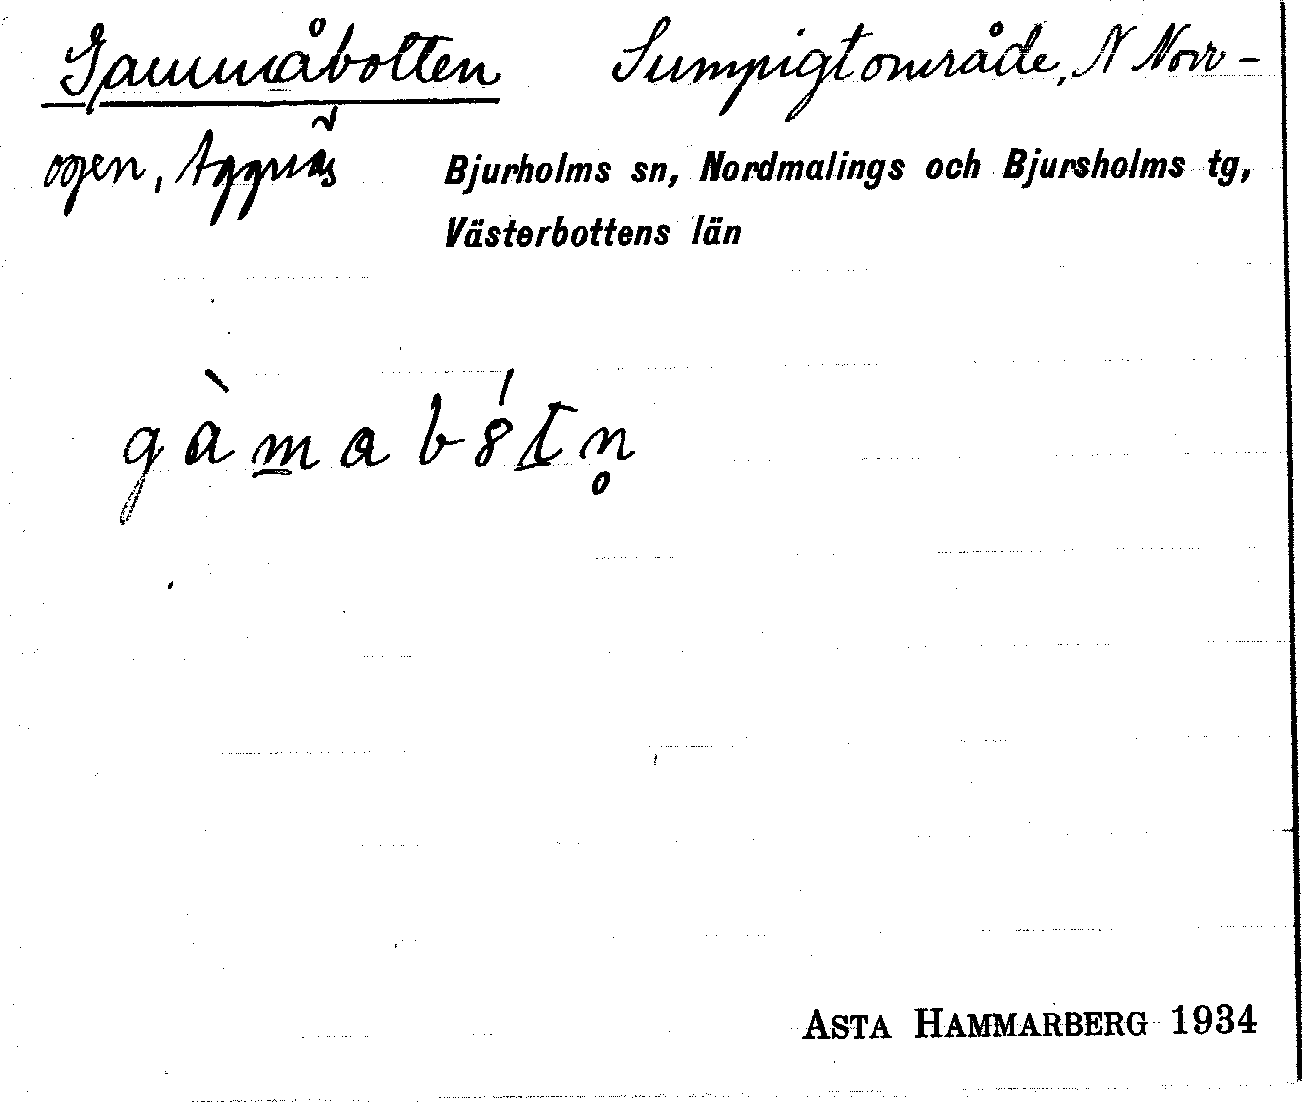 Gammåbotten Sumpigt område, N Norr-
ogen, Aggnäs Bjurholms sn, Nordmalings och Bjursholms tg,
Västerbottens län
gàmabśtn̥
ASTA HAMMARBERG 1934